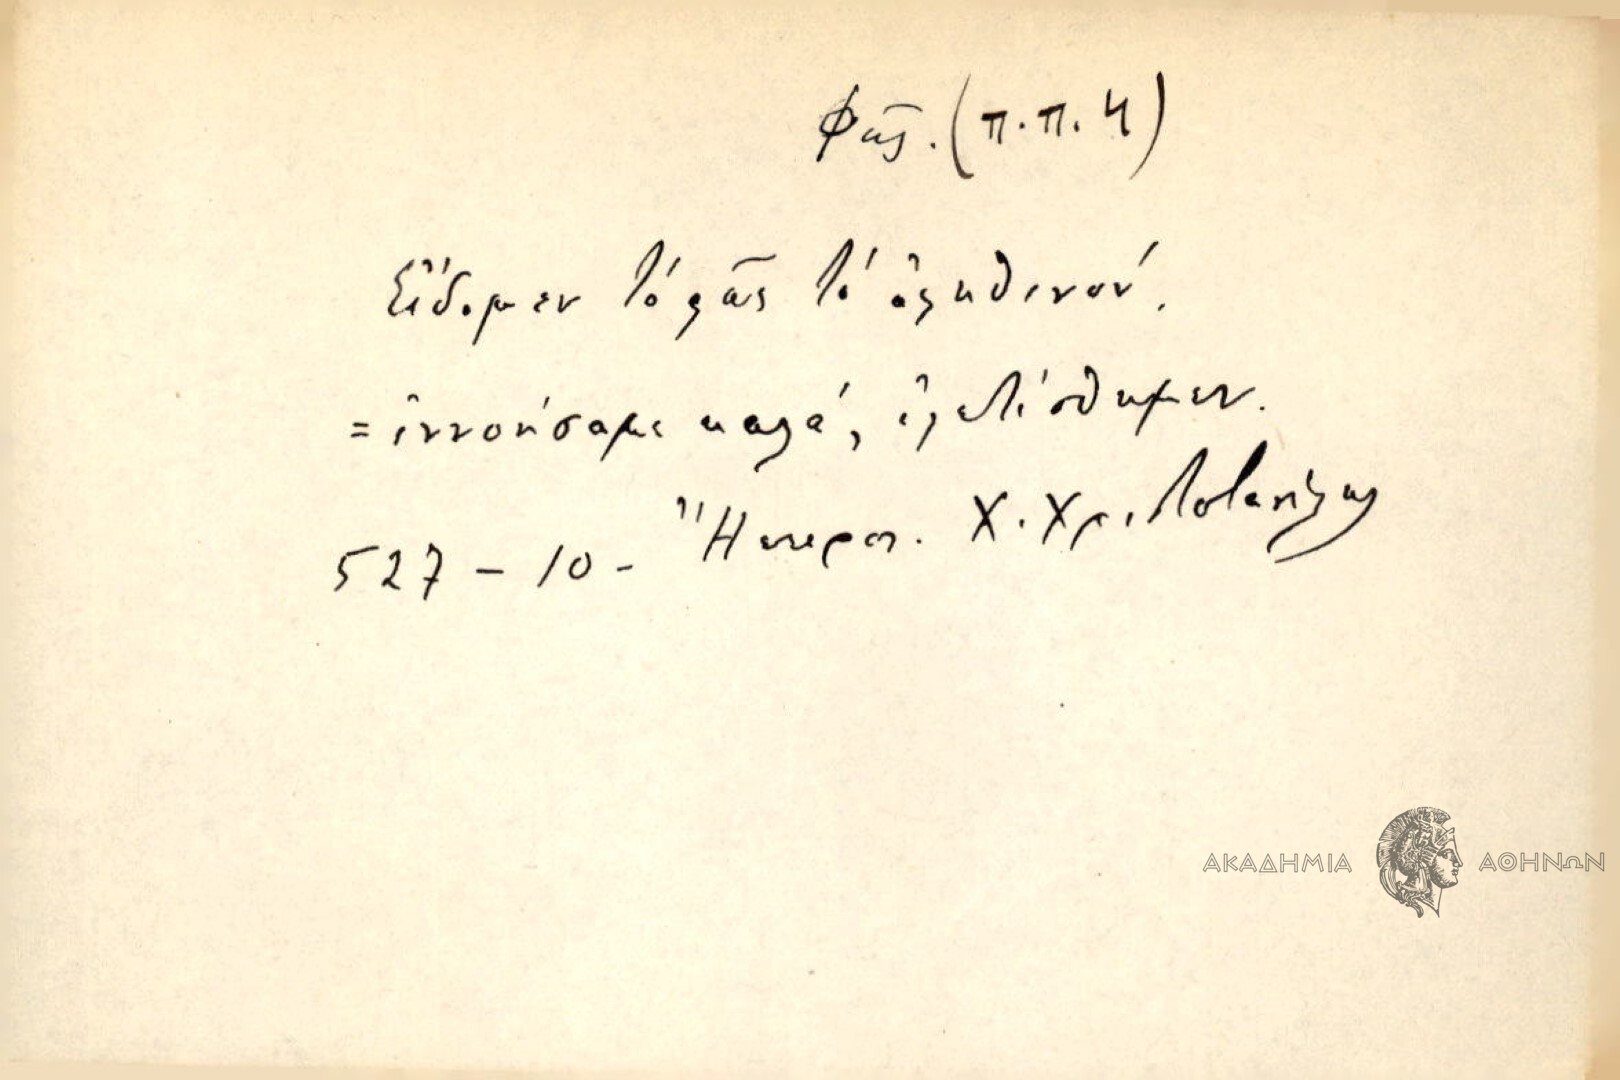 Φῶς. (π.π. 4)
Εἴδομεν τό φῶς τό ἀληθινόν.
= ἐννοήσαμε καλά, ἐφωτίσθημεν.
527 - 10 - Ἤπειρος. Χ. Χρ.
ΑΚΑΔΗΜΙΑ ΑΘΗΝΩΝ